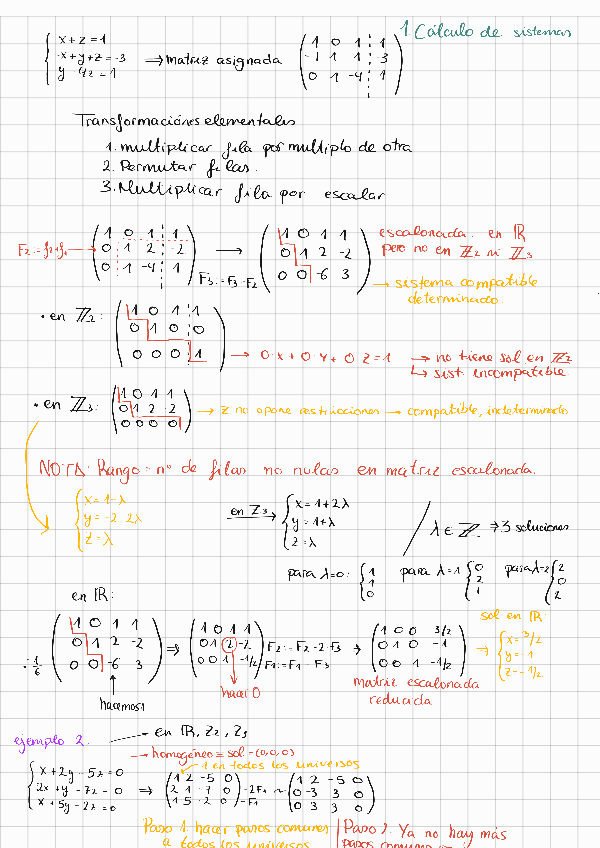 1 Cálculo de sistemas
x + z = 1
-x + y + z = -3
y - 4z = 1
⇒ matriz asignada
1 0 1 1
-1 1 1 3
0 1 -4 1
Transformaciones elementales
1. multiplicar fila por multiplo de otra
2. Permutar filas.
3. Multiplicar fila por escalar
F2 := f2+f1
1 0 1 1
0 1 2 -2
0 1 -4 1
F3 := F3 - F2
1 0 1 1
0 1 2 -2
0 0 -6 3
escalonada. en ℝ
pero no en ℤ2 ni ℤ3
→ sistema compatible
determinado.
• en ℤ2:
1 0 1 1
0 1 0 0
0 0 0 1
→ 0·x + 0·y + 0 z = 1 → no tiene sol en ℤ2
↳ sist. incompatible
• en ℤ3:
1 0 1 1
0 1 2 -2
0 0 0 0
→ z no opone restricciones → compatible, indeterminado
NOTA: Rango = nº de filas no nulas en matriz escalonada.
x = 1-λ
y = -2 2λ
z = λ
en ℤ3 →
x = 1+2λ
y = 1+λ
z = λ
/ λ ∈ ℤ. ⇒ 3 soluciones
para λ=0: 1 1 0 para λ=1 0 2 1 para λ=2 2 0 2
en ℝ:
:-1/6
1 0 1 1
0 1 2 -2
0 0 -6 3
hacemos 1
⇒
1 0 1 1
0 1 2 -2
0 0 1 -1/2
F2 := F2 - 2·F3
F1 := F1 - F3
hacer 0
→
1 0 0 3/2
0 1 0 -1
0 0 1 -1/2
matriz escalonada
reducida
sol en ℝ
⇒
x = 3/2
y = -1
z = -1/2
ejemplo 2. en ℝ, ℤ2, ℤ3
→ homogéneo = sol = (0,0,0)
1 en todos los universos
x + 2y - 5z = 0
2x + y - 7z = 0
x + 5y - 2z = 0
⇒
1 2 -5 0
2 1 -7 0
1 5 -2 0
-2F1
-F1
~
1 2 -5 0
0 -3 3 0
0 3 3 0
Paso 1. hacer pasos comunes
a todos los universos
Paso 2. Ya no hay más
pasos comunes